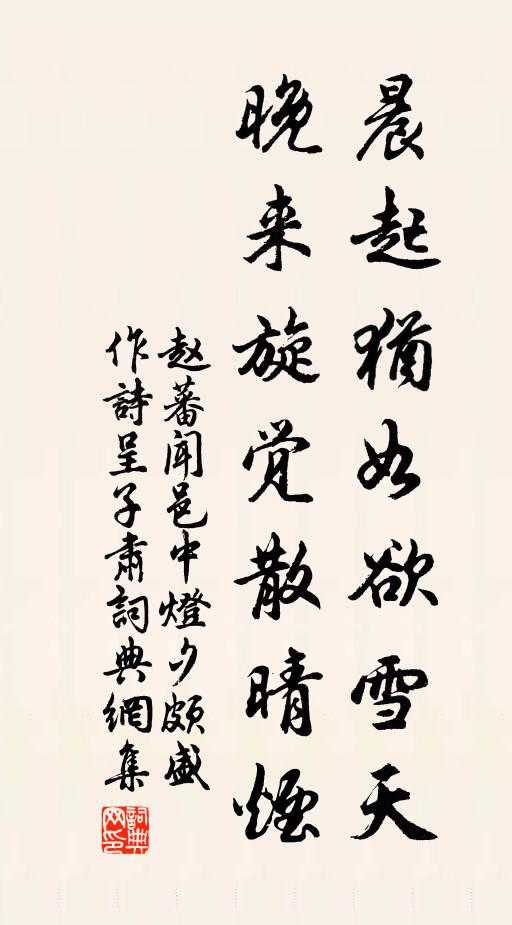 晨起猶如欲雪天
晚来旋觉散晴煙
赵蕃闻邑中燈夕頗盛
作詩呈子肅詞典網集
詞典
网印